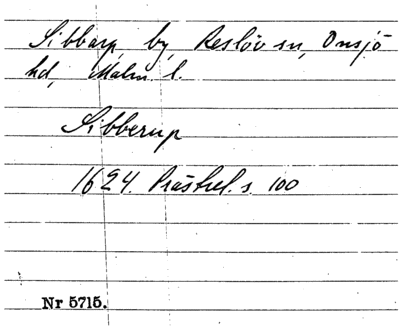 Sibbarp, by, Reslöv sn, Onsjö
hd, Malm. l.
Sibberup
1624. Prästrel. s. 100
Nr 5715.